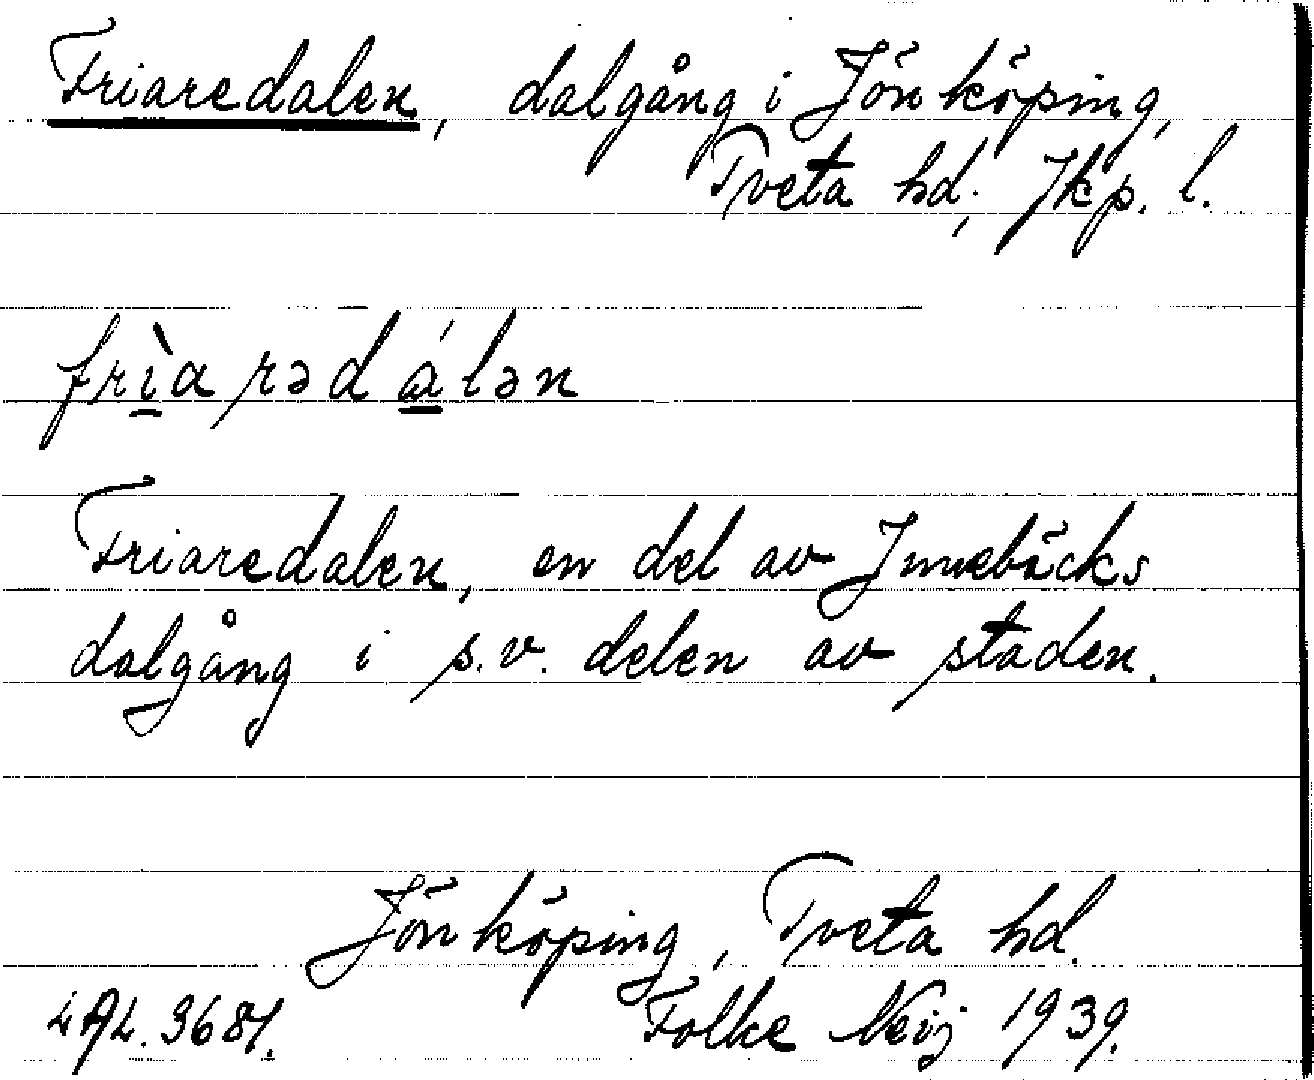 Friaredalen, dalgång i Jönköping,
Tveta hd; Jkp. l.
frìarədálən
Friaredalen, en del av Junebäcks
dalgång i s.v. delen av staden.
Jönköping, Tveta hd.
LAL. 3681. Folke 1939.